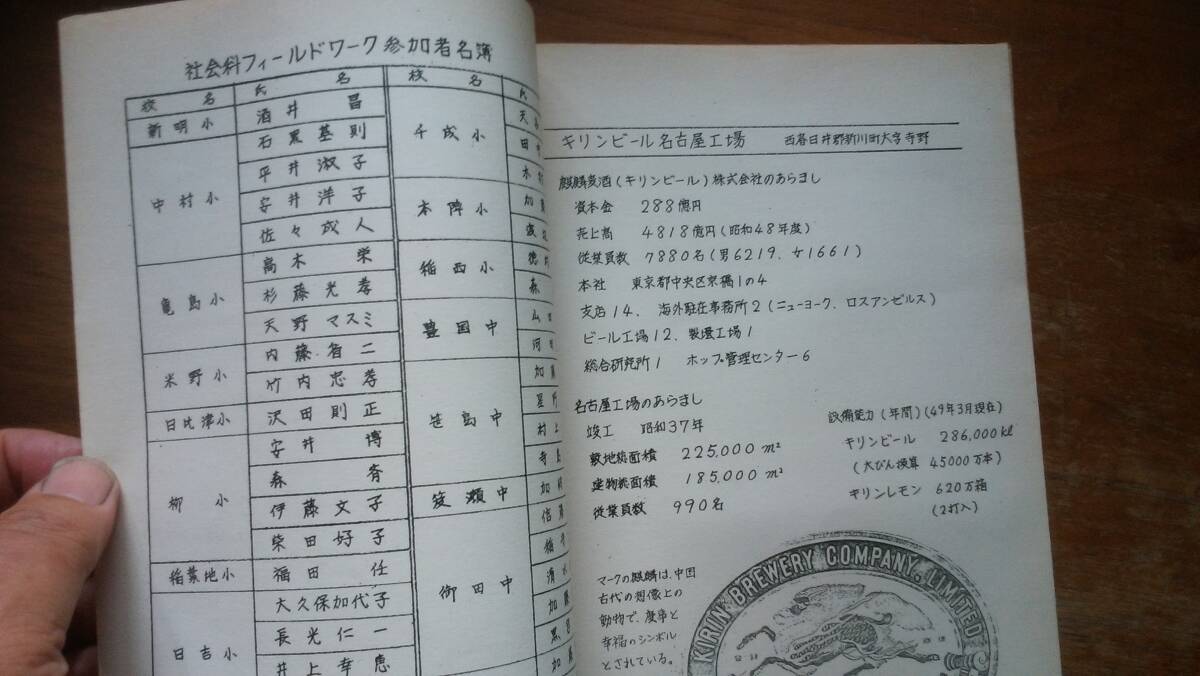 社会科フィールドワーク参加者名簿
校名 氏名 校名 氏
新明小 酒井 昌
中村小 石黒基則
平井淑子
安井洋子
佐々成人
亀島小 高木 栄
杉藤光孝
天野マスミ
米野小 内藤省二
竹内忠孝
日比津小 沢田則正
柳小 安井 博
森 斉
伊藤文子
柴田好子
稲葉地小 福田 任
日吉小 大久保加代子
長光仁一
井上幸恵
千成小 天
田中
木村
本陣小 加藤
渡辺
稲西小
森
豊国中 山田
河
笹島中 加藤
星
村上
寺
笈瀬中 加
御田中 信
稲
清水
加藤
黒
加藤
キリンビール名古屋工場 西春日井郡新川町大字寺野
麒麟麦酒(キリンビール)株式会社のあらまし
資本金 288億円
売上高 4818億円(昭和48年度)
従業員数 7880名(男6219、女1661)
本社 東京都中央区京橋1の4
支店14、海外駐在事務所2(ニューヨーク、ロスアンゼルス)
ビール工場12、製壜工場1
総合研究所1 ホップ管理センター6
名古屋工場のあらまし
竣工 昭和37年
敷地総面積 225,000m²
建物総面積 185,000m²
従業員数 990名
設備能力(年間)(49年3月現在)
キリンビール 286,000kl
(大びん換算 45000万本)
キリンレモン 620万箱
(2打入)
マークの麒麟は、中国
古代の想像上の
動物で、慶事と
幸福のシンボル
とされている。
KIRIN BREWERY COMPANY, LIMITED